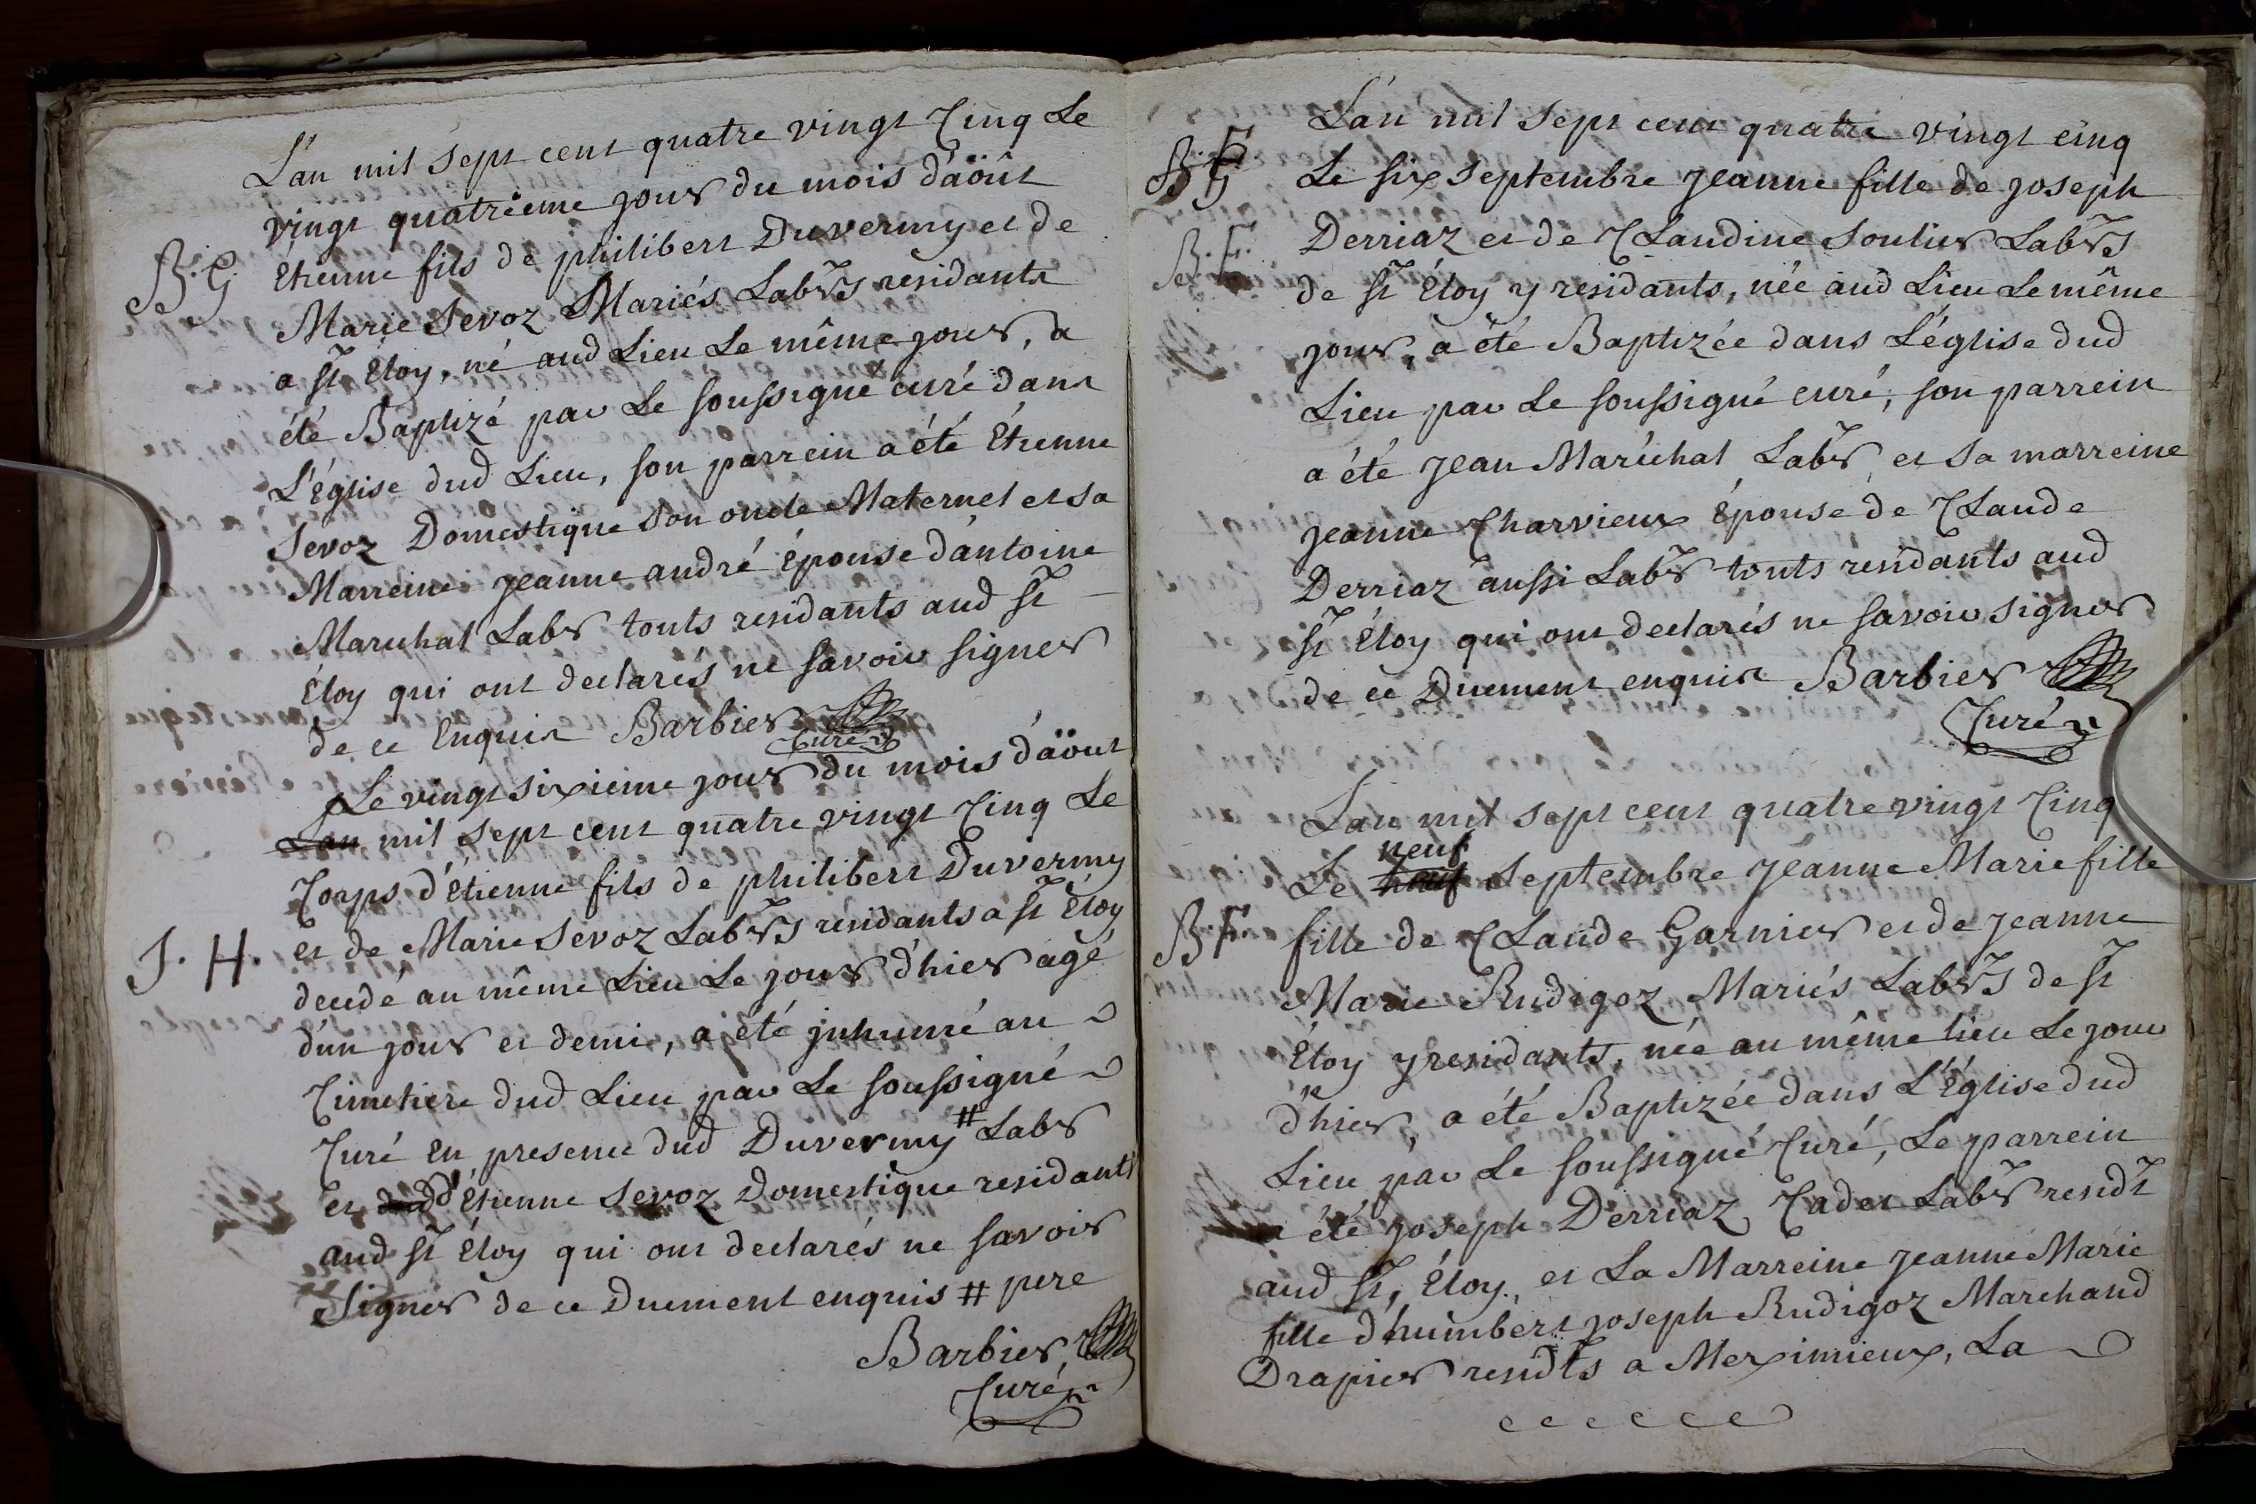 L'an mil sept cent quatre vingt Cinq Le
vingt quatrieme jour du mois d'äoût
B. G. Étienne fils de philibert Duvermy et de
Marie Sevoz Mariés Labrs residants
a St Eloy, né aud Lieu Le même jour, a
été Baptizé par Le soussigné curé dans
L'Église dud Lieu, son parrein a été Étienne
Sevoz Domestique son oncle Maternel et sa
Marreine jeanne andré Épouse d'antoine
Marechal Labr touts residants aud St
Éloy qui ont declarés ne savoir signer
de ce Enquis Barbier
Curé
Le vingt sixieme jour du mois d'äout
L'an mil sept cent quatre vingt Cinq Le
Corps d'Étienne fils de philibert Duvermy
et de Marie Sevoz Labrs residants a St Éloy
S. H. decedé au même Lieu Le jour d'hier agé
d'un jour et demi, a été jnhumé au
Cimetiere dud Lieu par Le soussigné
Curé En presence dud Duvermy # Labr
et d'Étienne Sevoz Domestique residants
aud St Éloy qui ont declarés ne savoir
Signer de ce Duement enquis # pere
Barbier
Curé
L'an mil sept cent quatre vingt cinq
B. F. Le six septembre jeanne fille de joseph
B. F. Derriaz et de CLaudine Soulier Labrs
de St Éloy y residants, née aud Lieu Le même
jour, a été Baptizée dans L'église dud
Lieu par Le soussigné curé, son parrein
a été jean Maréchal Labr et sa marreine
jeanne Charvieux Épouse de CLaude
Derriaz aussi Labr touts residants aud
St Éloy qui ont declarés ne savoir signer
de ce Duement enquis Barbier
Curé
L'an mil sept cent quatre vingt Cinq
neuf
Le neuf Septembre jeanne Marie fille
B. F. fille de CLaude Garnier et de jeanne
Marie Rudigoz Mariés Labrs de St
Éloy y residants, née au même lieu Le jour
d'hier, a été Baptizée dans L'Église dud
Lieu par Le soussigné Curé, Le parrein
a été joseph Derriaz Cadet Labr residt
aud St, Éloy, et La Marreine jeanne Marie
fille d'humbert joseph Rudigoz Marchand
Drapier residts a Meximieux, La